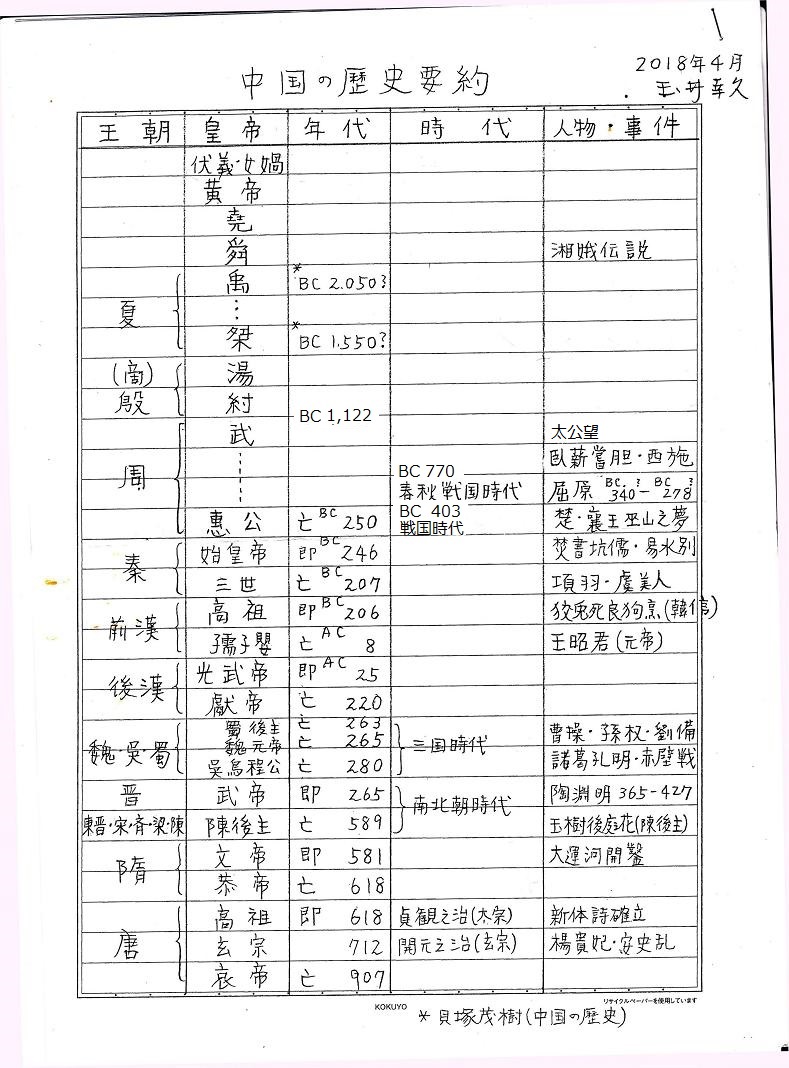 中国の歴史要約
2018年4月
玉井幸久
王朝 皇帝 年代 時代 人物・事件
伏義・女媧
黄帝
堯
舜 湘娥伝説
夏 禹 *BC 2.050?
⋮
桀 *BC 1.550?
(商) 湯
殷 紂
BC 1,122
武 太公望
周 BC 770 臥薪嘗胆・西施
春秋戦国時代 屈原 BC.?340-BC?278
BC 403
恵公 亡BC 250 戦国時代 楚・襄王巫山之夢
秦 始皇帝 即BC 246 焚書坑儒・易水別
三世 亡BC 207 項羽・虞美人
前漢 高祖 即BC 206 狡兎死良狗烹(韓信)
孺子嬰 亡AC 8 王昭君(元帝)
後漢 光武帝 即AC 25
献帝 亡 220
魏・呉・蜀 蜀後主 亡 263 三国時代 曹操・孫权・劉備
魏元帝 亡 265
呉烏程公 亡 280 諸葛孔明・赤壁戦
晋 武帝 即 265 南北朝時代 陶淵明365-427
東晋・宋・斉・梁・陳 陳後主 亡 589 玉樹後庭花(陳後主)
隋 文帝 即 581 大運河開鑿
恭帝 亡 618
唐 高祖 即 618 貞観之治(太宗) 新体詩確立
玄宗 712 開元之治(玄宗) 楊貴妃・安史乱
哀帝 亡 907
KOKUYO
リサイクルペーパーを使用しています
*貝塚茂樹(中国の歴史)